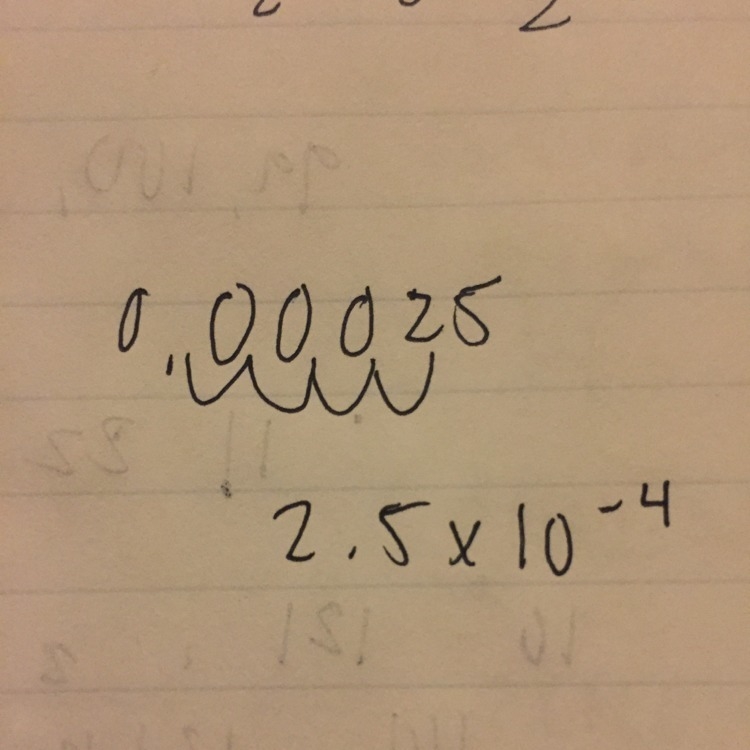 0.00025
2.5x10⁻⁴